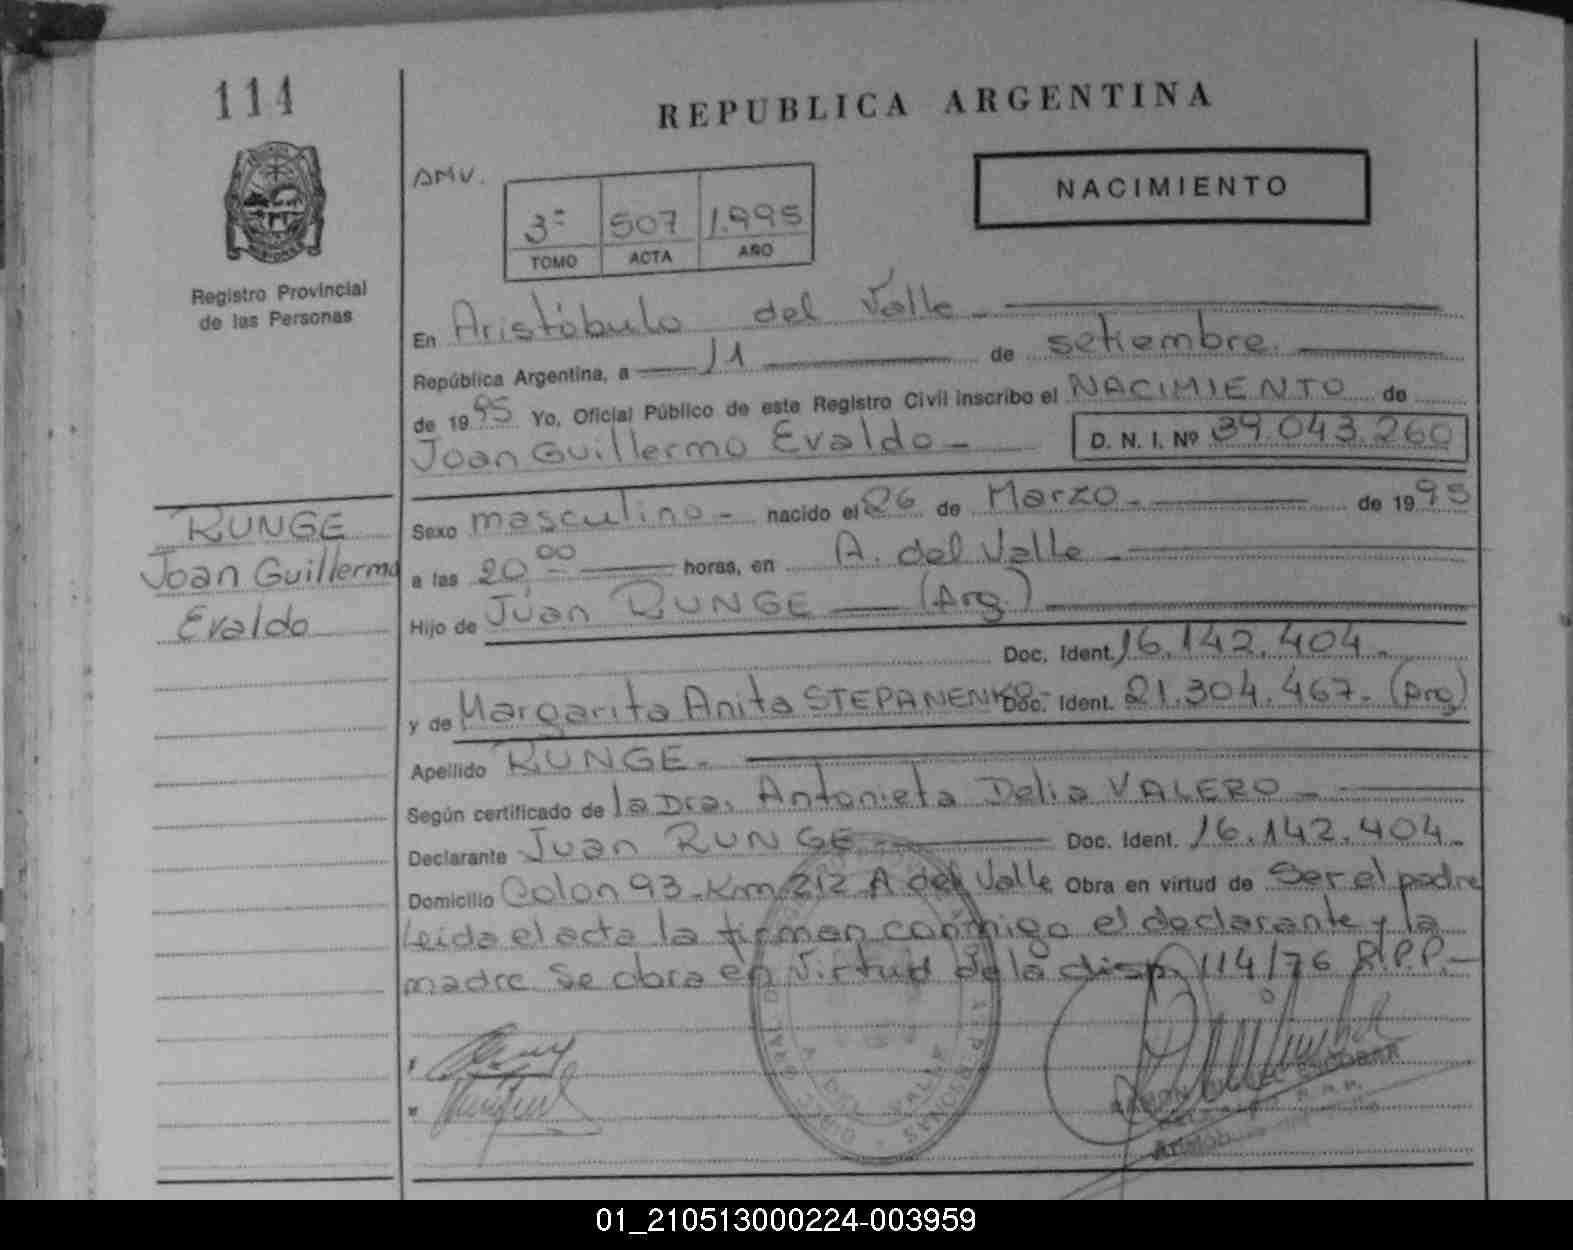 114
REPUBLICA ARGENTINA
Registro Provincial
de las Personas
AMV.
NACIMIENTO
3º 507 1.995
TOMO ACTA AÑO
En Aristóbulo del Valle -
República Argentina, a 11 de setiembre.
de 1995 Yo, Oficial Público de este Registro Civil inscribo el NACIMIENTO de
Joan Guillermo Evaldo - D. N. I. Nº 39.043.260
RUNGE
Joan Guillermo
Evaldo
Sexo masculino - nacido el 26 de Marzo - de 1995
a las 20,00 horas, en A. del Valle -
Hijo de Juan RUNGE (Arg.)
Doc. Ident. 16.142.404.
y de Margarita Anita STEPANENKO- Doc. Ident. 21.304.467. (Arg)
Apellido RUNGE.
Según certificado de la Dra. Antonieta Delia VALERO -
Declarante Juan RUNGE Doc. Ident. 16.142.404.
Domicilio Colon 93-Km 212 A del Valle Obra en virtud de Ser el padre
Leida el acta la firman conmigo el declarante y la
madre. Se obra en virtud de la disp. 114/76 R.P.P.-
A. DEL VALLE
01_210513000224-003959